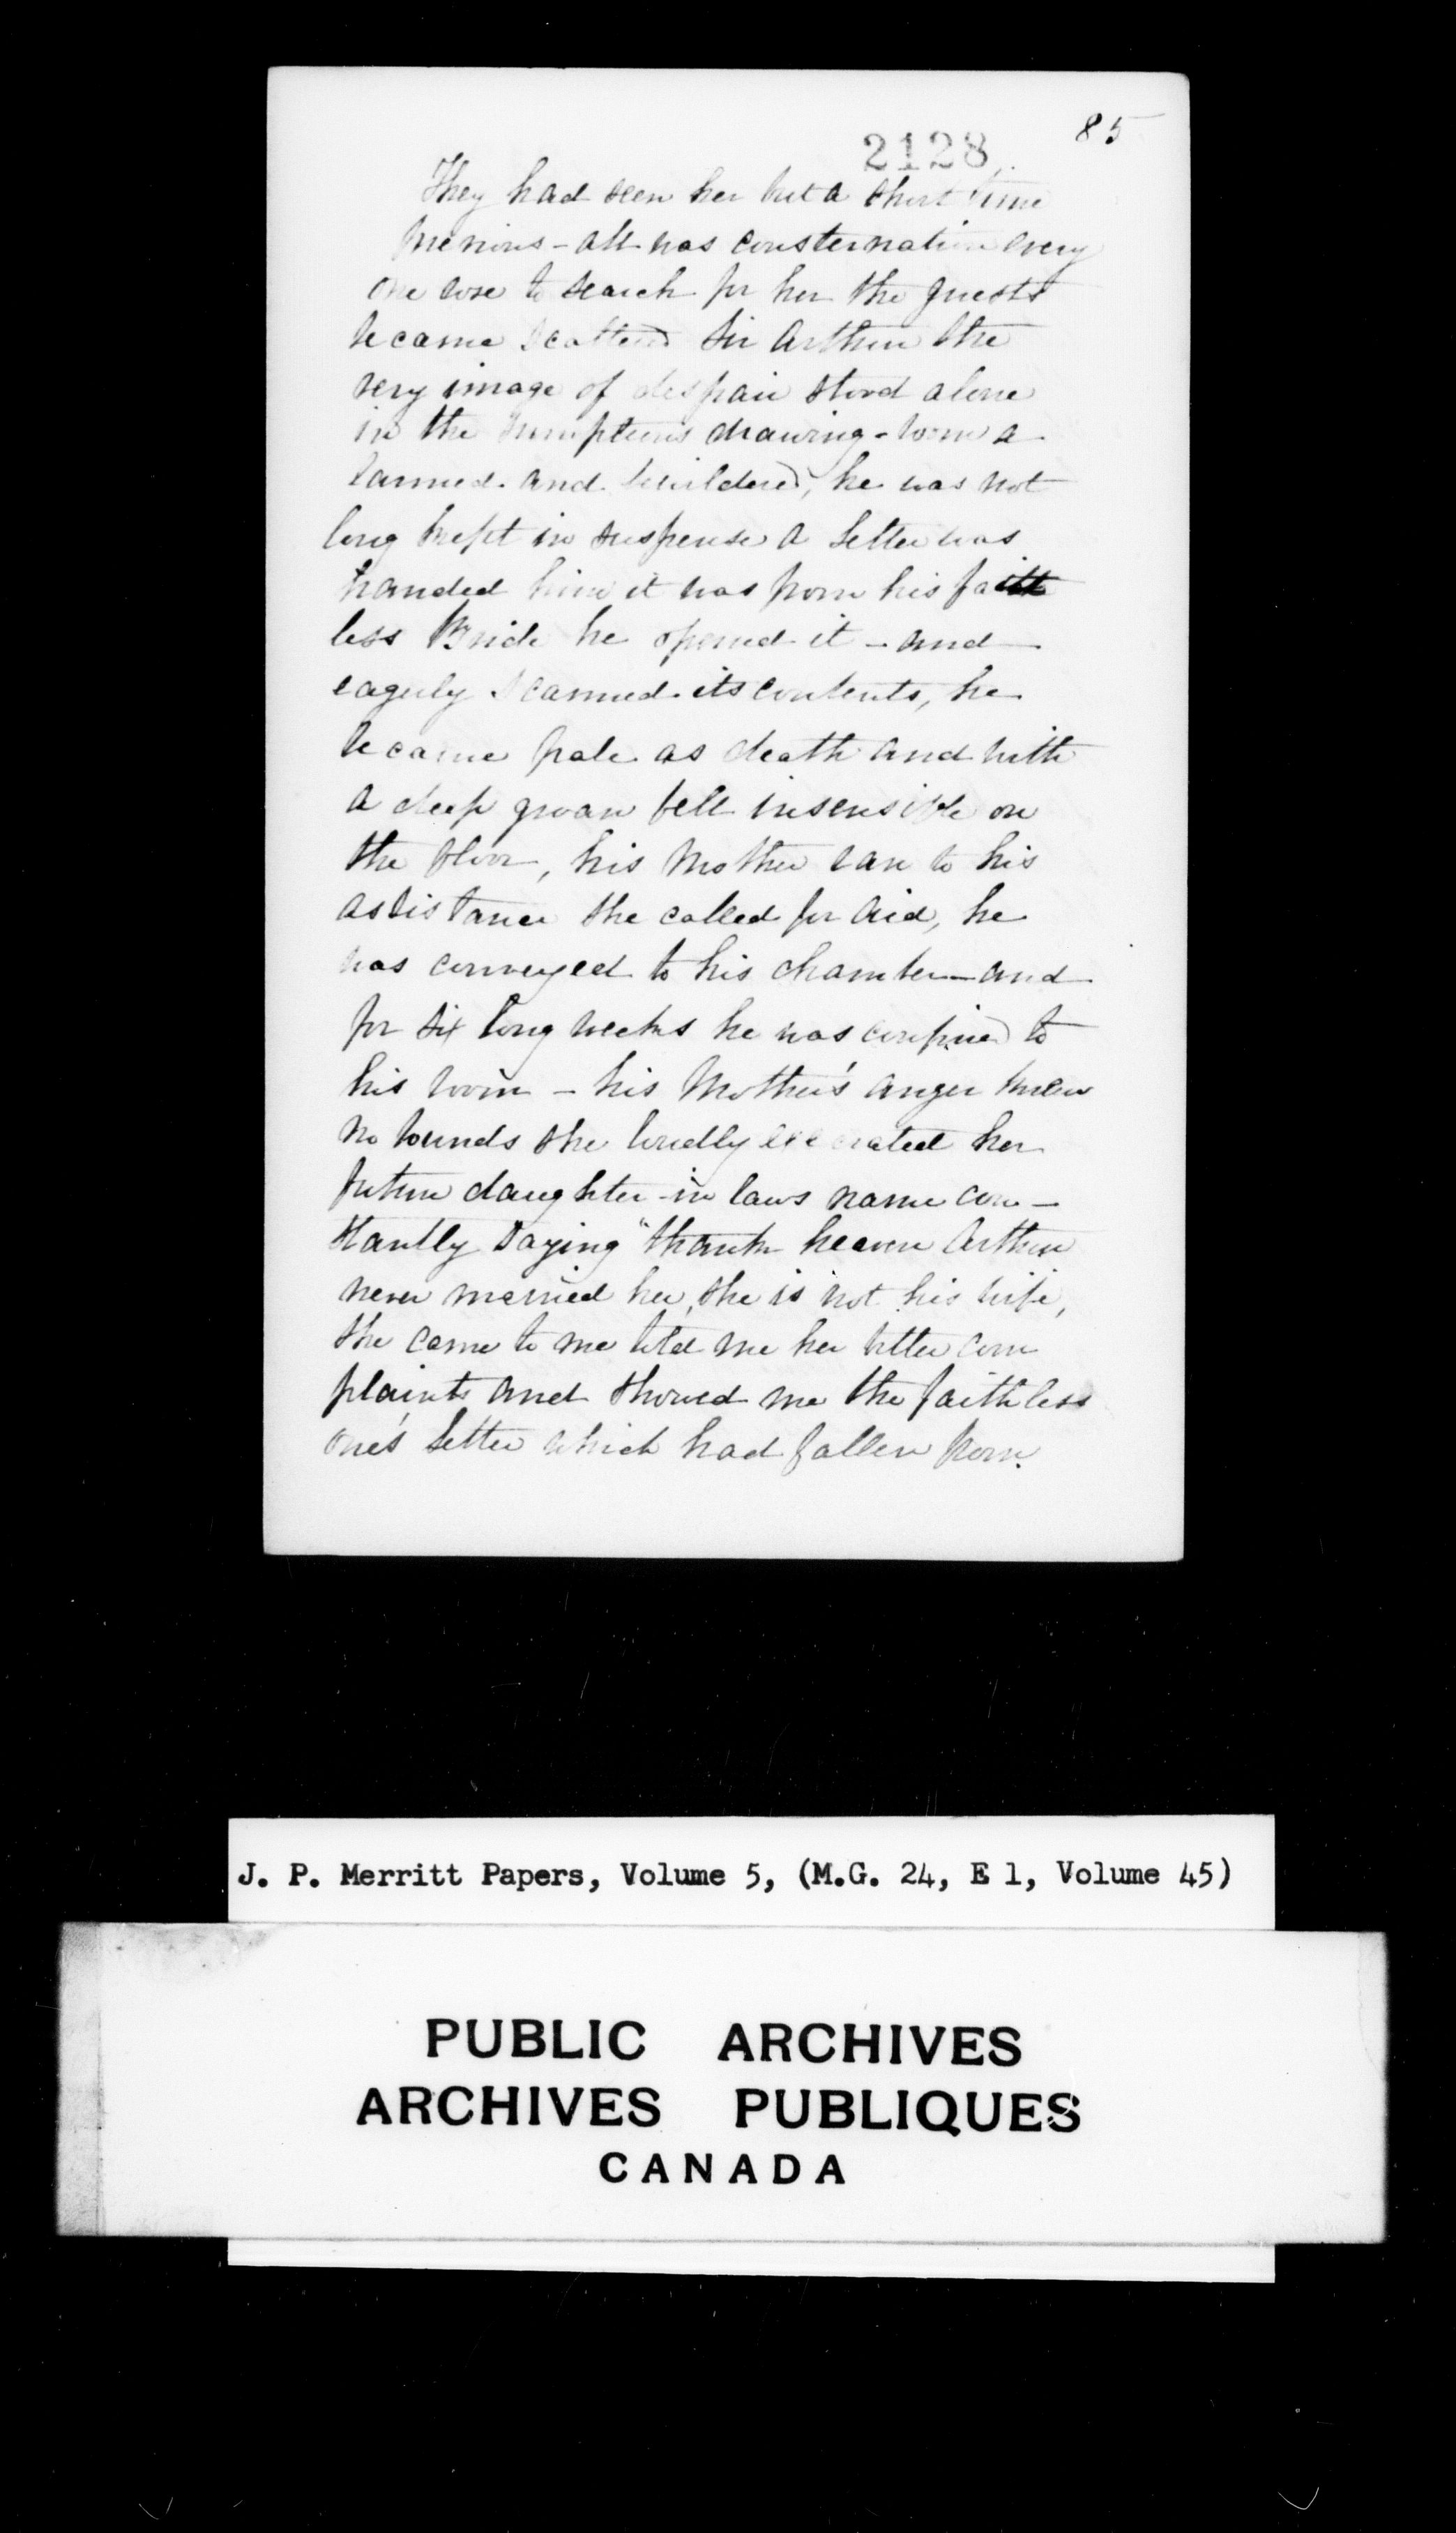 85
2128
They had seen her but a short time
previous - all was consternation every
one rose to search for her the guests
became scattered Sir Arthur the
very image of despair stood alone
in the sumptuous drawing-room a
larmed and bewildered, he was not
long kept in suspense a letter was
handed him it was from his faith
less Bride he opened it - and
eagerly scanned its contents, he
became pale as death and with
a deep groan fell insensible on
the floor, his Mother ran to his
assistance she called for aid, he
was conveyed to his chamber - and
for six long weeks he was confined to
his room - his Mother's anger knew
no bounds she loudly execrated her
future daughter-in laws name con-
stantly saying "thank heaven Arthur
never married her, she is not his wife,
she came to me told me her bitter com
plaints and showed me the faithless
one's letter which had fallen from
J. P. Merritt Papers, Volume 5, (M.G. 24, E 1, Volume 45)
PUBLIC ARCHIVES
ARCHIVES PUBLIQUES
CANADA